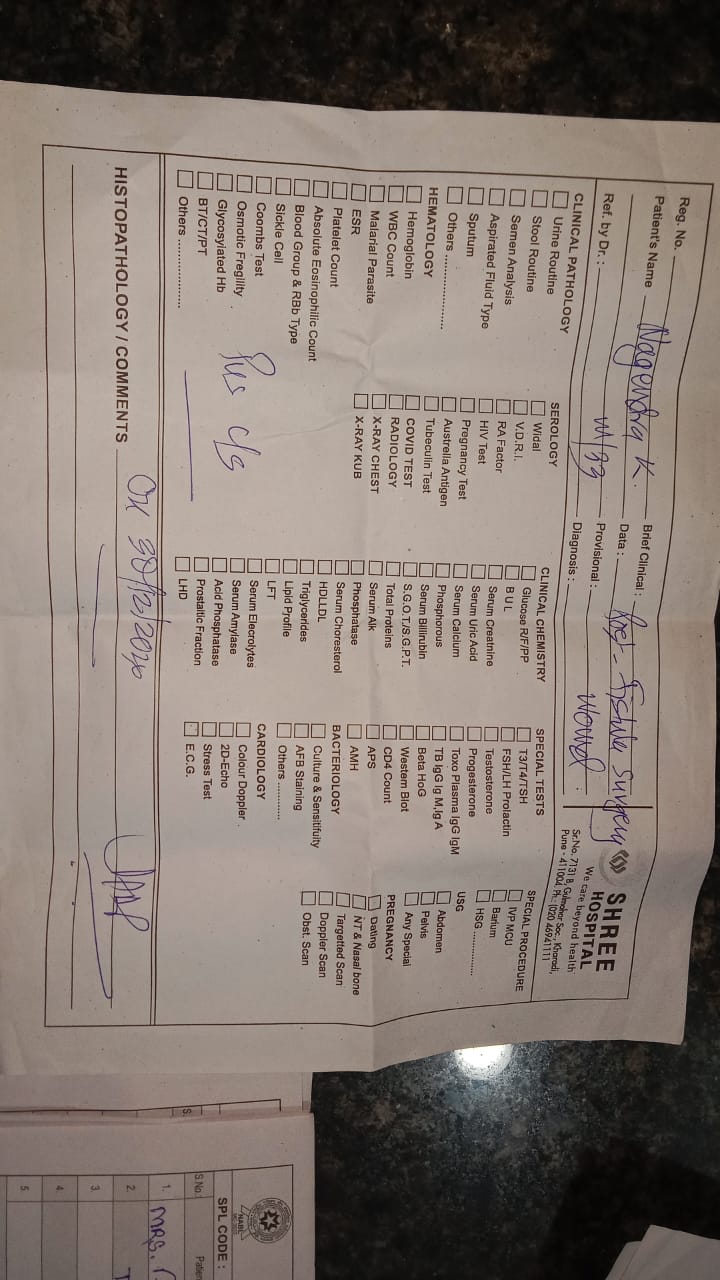 SHREE
HOSPITAL
We care beyond health
Sr.No. 7131 B, Gulmohar Soc., Kharadi,
Pune - 411004, Ph.: (020) 46941111
Reg. No.
Patient's Name Nagendra K.
Ref. by Dr. : M/39
Brief Clinical :
Data : Post - Fistula surgery
Provisional : wound
Diagnosis :
CLINICAL PATHOLOGY
Urine Routine
Stool Routine
Semen Analysis
Aspirated Fluid Type
Sputum
Others ..................
HEMATOLOGY
Hemoglobin
WBC Count
Malarial Parasite
ESR
Platelet Count
Absolute Eosinophilic Count
Blood Group & RBb Type
Sickle Cell
Coombs Test
Osmotic Fregility
Glycosylated Hb
BT/CT/PT
Others ..................
SEROLOGY
Widal
V.D.R.I.
RA Factor
HIV Test
Pregnancy Test
Austrella Antigen
Tubeculin Test
COVID TEST
RADIOLOGY
X-RAY CHEST
X-RAY KUB
Pus c/s
CLINICAL CHEMISTRY
Glucose R/F/PP
B U L
Serum Creatnine
Serum Uric Acid
Serum Calcium
Phosphorous
Serum Billirubin
S.G.O.T./S.G.P.T.
Total Proteins
Serum Alk
Phosphatase
Serum Choresterol
HDLLDL
Triglycerides
Lipid Profile
LFT
Serum Elecrolytes
Serum Amylase
Acid Phosphatase
Prostallic Fraction
LHD
SPECIAL TESTS
T3/T4/TSH
FSH/LH Prolactin
Testosterone
Progesterone
Toxo Plasma IgG IgM
TB IgG Ig M,Ig A
Beta HoG
Western Blot
CD4 Count
APS
AMH
BACTERIOLOGY
Culture & Sensitifuity
AFB Staining
Others ............
CARDIOLOGY
Colour Doppler
2D-Echo
Stress Test
E.C.G.
SPECIAL PROCEDURE
IVP MCU
Barium
HSG ..............
USG
Abdomen
Pelvis
Any Special
PREGNANCY
Dating
NT & Nasal bone
Targetted Scan
Doppler Scan
Obst. Scan
HISTOPATHOLOGY / COMMENTS On 30/12/2020
NABL
SPL CODE :
S.No.
1. MRS.
2.
3.
4
5